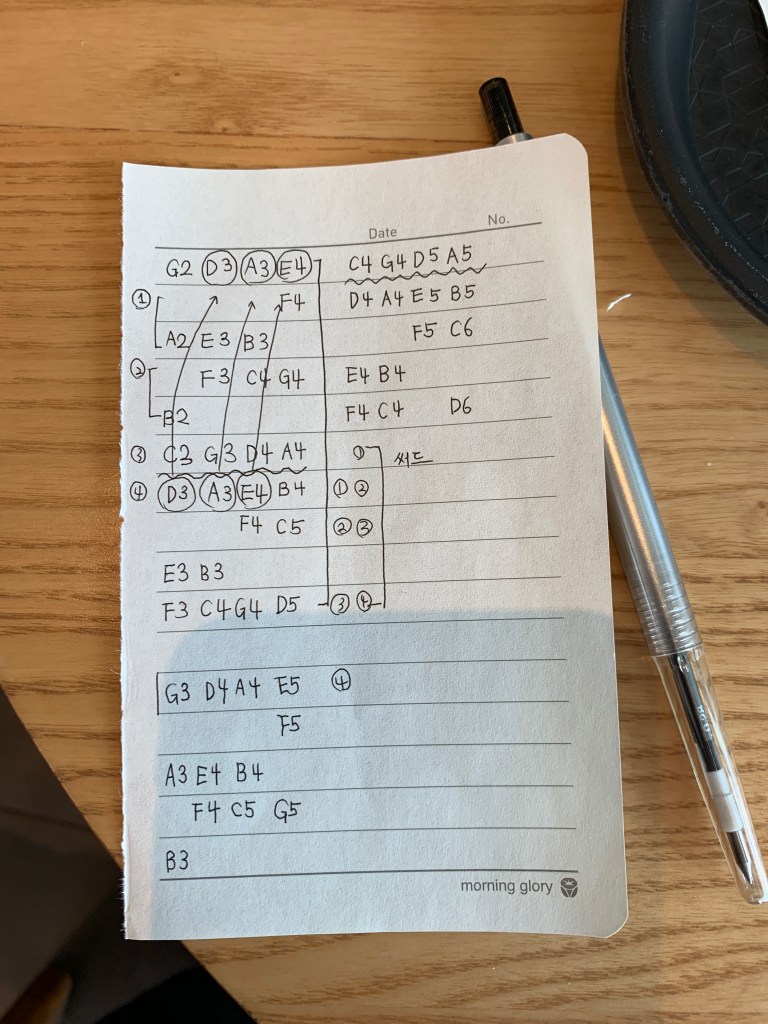 Date No.
G2 D3 A3 E4 C4 G4 D5 A5
① F4 D4 A4 E5 B5
A2 E3 B3 F5 C6
② F3 C4 G4 E4 B4
B2 F4 C4 D6
③ C3 G3 D4 A4 ① 써드
④ D3 A3 E4 B4 ① ②
F4 C5 ② ③
E3 B3
F3 C4 G4 D5 ③ ④
G3 D4 A4 E5 ④
F5
A3 E4 B4
F4 C5 G5
B3
morning glory